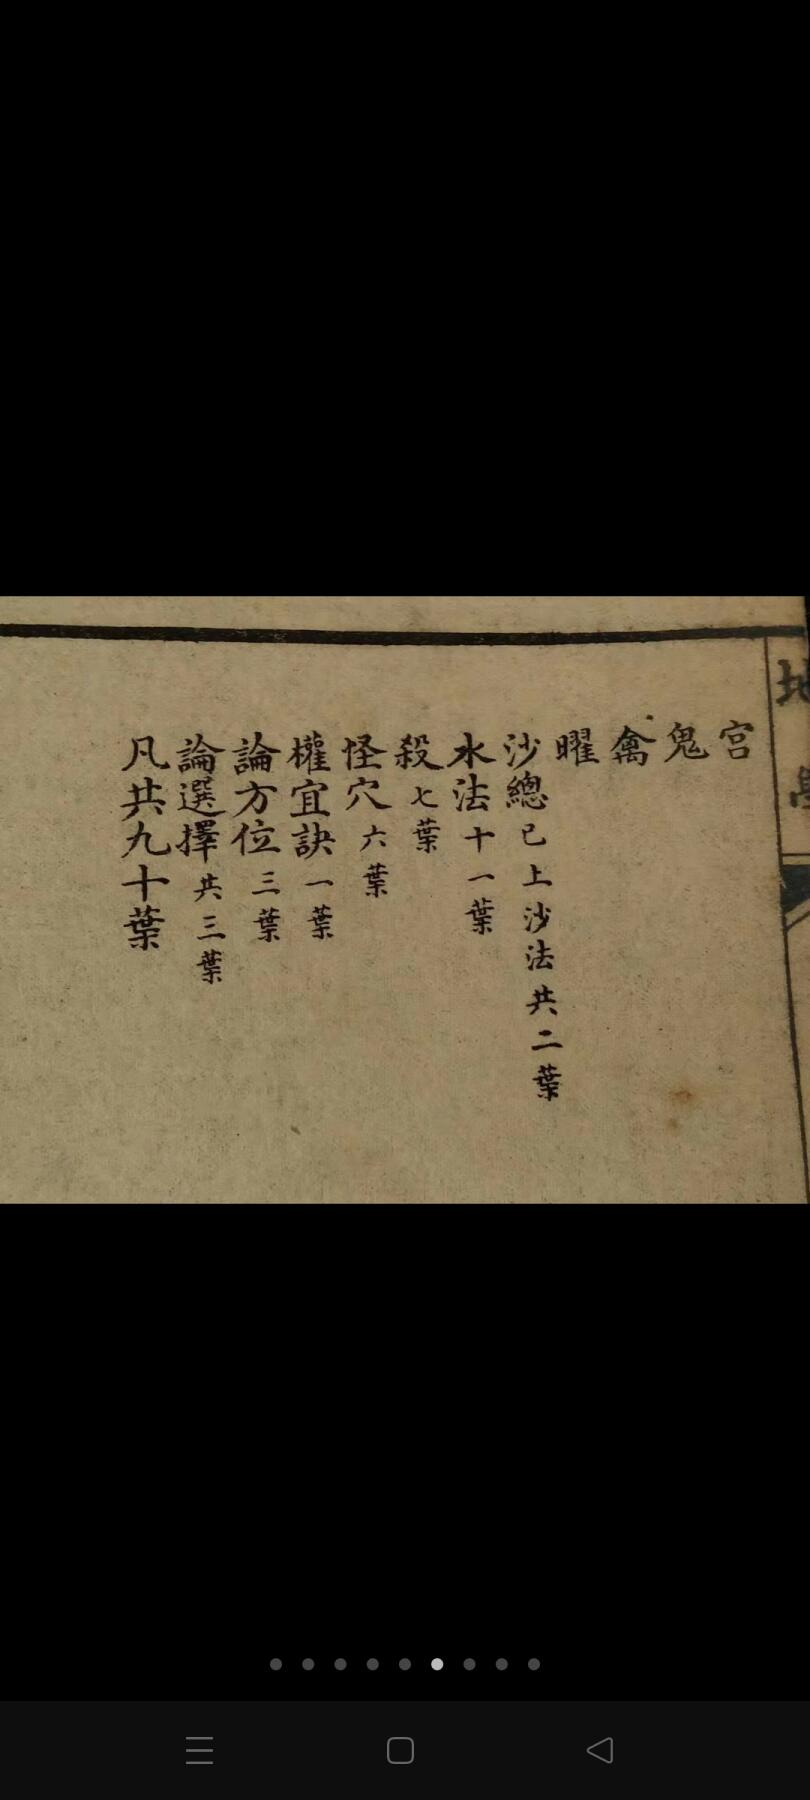 地學
宮
鬼
禽
曜
沙總 已上沙法共二葉
水法 十一葉
殺 七葉
怪穴 六葉
權宜訣 一葉
論方位 三葉
論選擇 共三葉
凡共九十葉